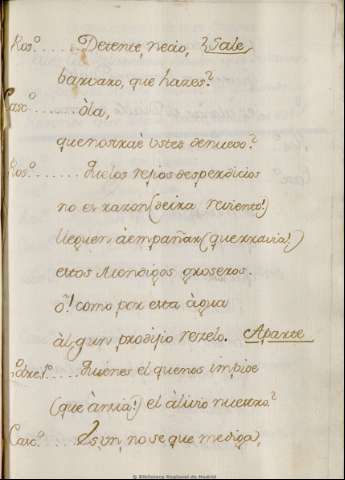 Ros.º ..... Detente, necio, Sale
barbaro, que haces?
Casc.º ........ òla,
que nos trae Usted de nuevo?
Ros.º .... Que los regios desperdicios
no es razon (de ira reviento!)
lleguen à empañar (que rravia!)
estos Mondigos groseros.
ô! como por esta àgua
àlgun prodijio rezelo. Aparte
..... Quien es el que nos impide
(que ànsia!) el àlivio nuestro?
Casc.º .... Es un, no se que me diga,
© Biblioteca Regional de Madrid